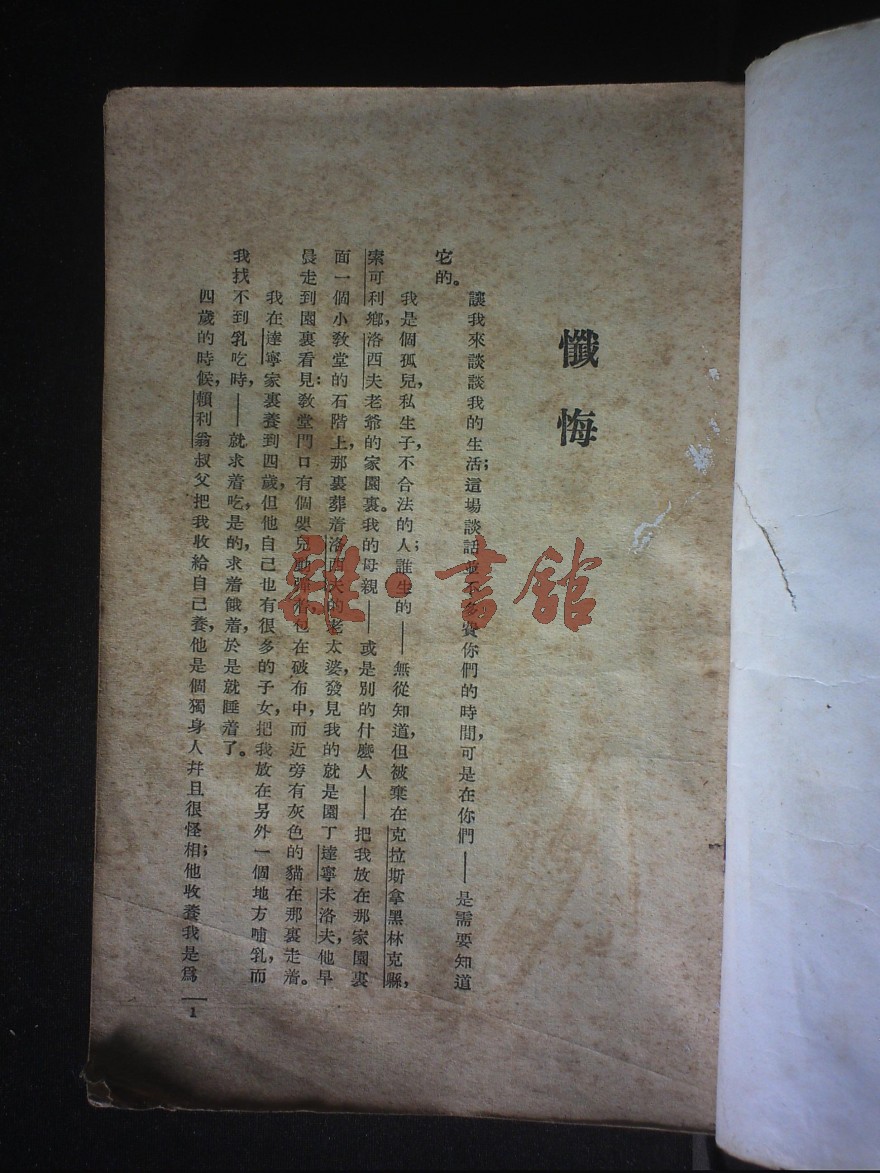 懺悔
讓我來談談我的生活；這場談話並不多費你們的時間，可是在你們——是需要知道
它的。
我是個孤兒，私生子，不合法的人；誰生的——無從知道，但被棄在克拉斯拿黑林克縣，
索可利鄉，洛西夫老爺的家園裏。我的母親——或是別的什麼人——把我放在那家園裏
面一個小教堂的石階上，那裏葬着洛西夫的老太婆，發見我的就是園丁達寧未洛夫，他早
晨走到園裏看見：教堂門口有個嬰兒動彈着，包在破布中，而近旁有灰色的貓在那裏走着。
我在達寧家裏養到四歲，但他自己也有很多的子女，把我放在另外一個地方哺乳，而
我找不到乳吃時，——就求着吃，是的，求着餓着，於是就睡着了。
四歲的時候，賴利翁叔父把我收給自己養，他是個獨身人幷且很怪相；他收養我是爲
1
雜·書館